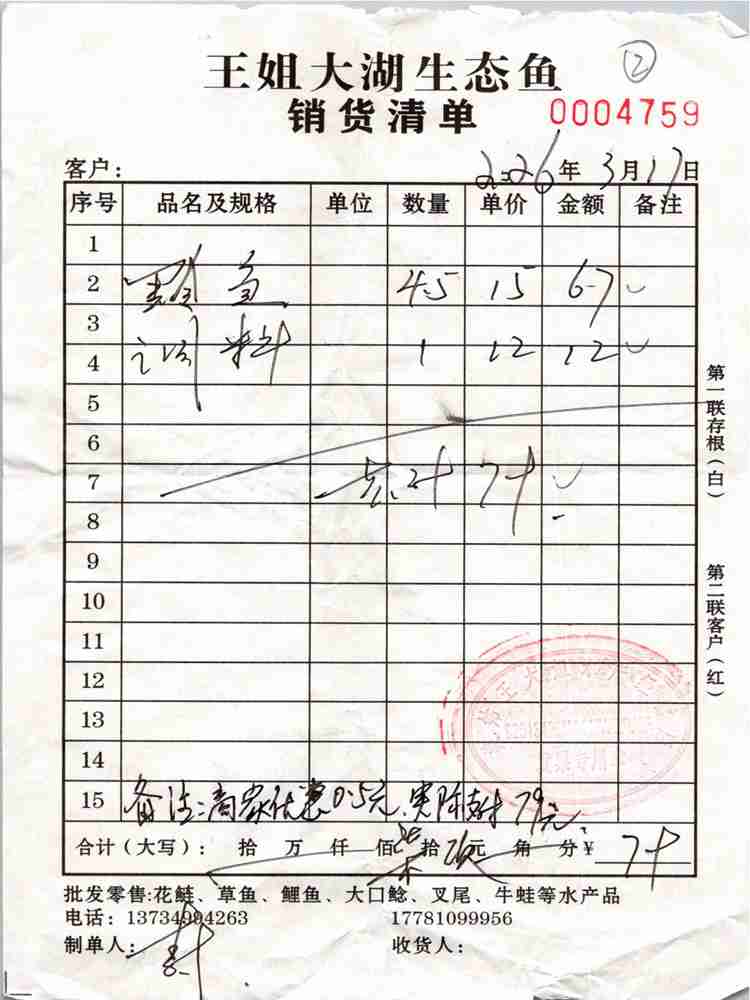 王姐大湖生态鱼
②
销货清单
0004759
客户： 2026年3月17日
序号 品名及规格 单位 数量 单价 金额 备注
1
2 鱼 4.5 15 67
3
4 调料 1 12 12
5
6
7 总计 79
8
9
10
11
12
13
14
15 备注：商家优惠0.5元，实际支付79元。
合计（大写）： 拾 万 仟 佰 柒拾 玖元 角 分￥ 79
批发零售:花鲢、草鱼、鲤鱼、大口鲶、叉尾、牛蛙等水产品
电话：13734904263 17781099956
制单人： 收货人：
第一联存根（白）
第二联客户（红）